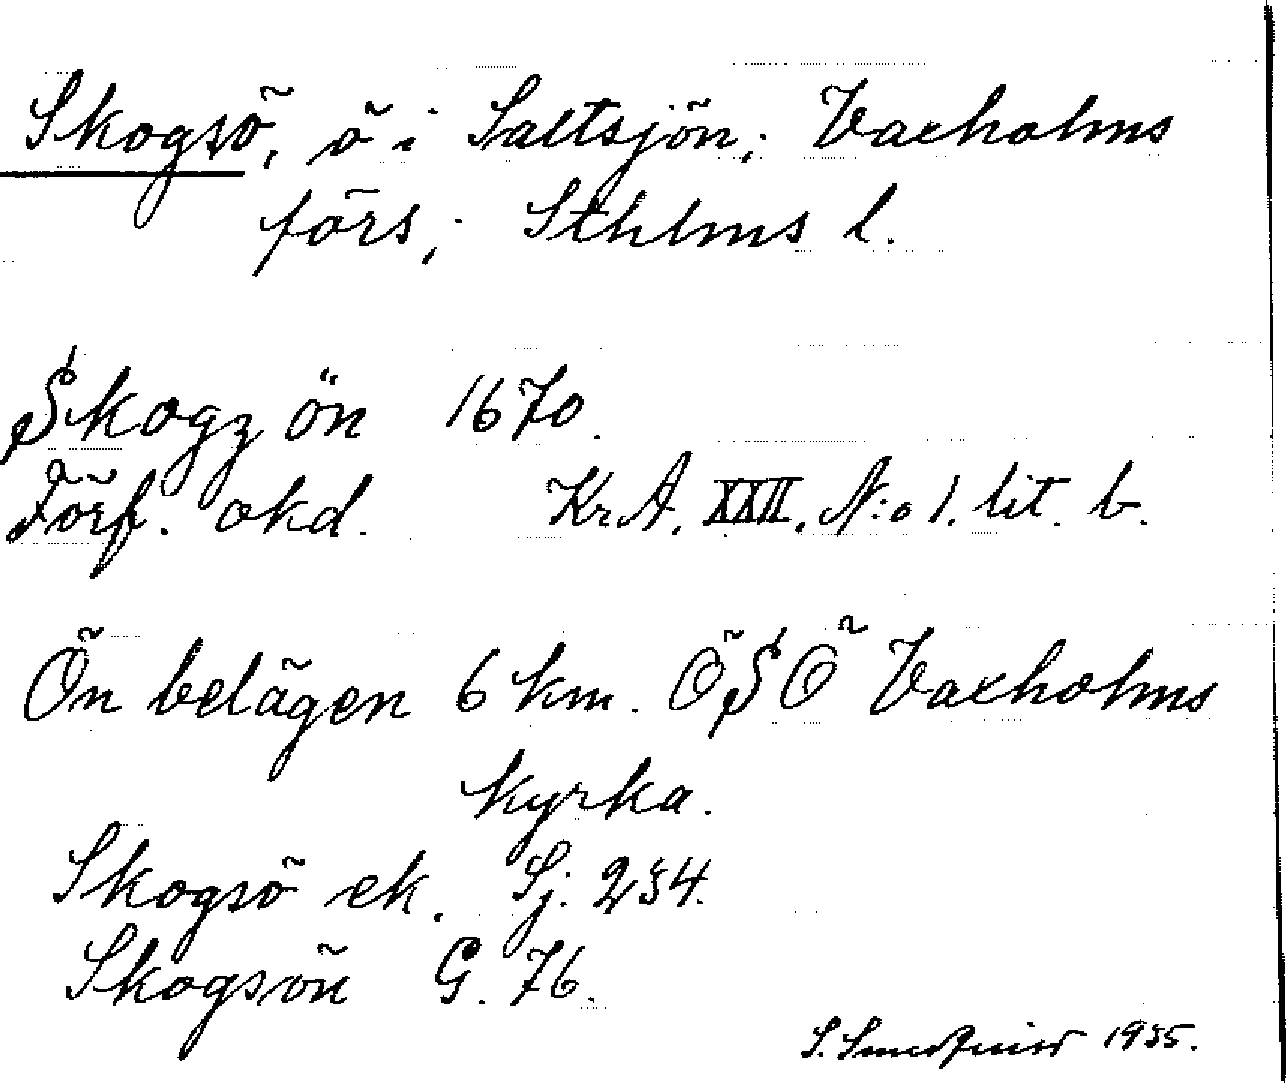 Skogsö, ö i Saltsjön; Vaxholms
förs; Sthlms l.
Skogz ön 1670.
Förf. okd. KrA. XXII. N:o 1. lit. b.
Ön belägen 6 km. ÖSÖ Vaxholms
kyrka.
Skogsö ek. Sj. 234.
Skogsön G. 76.
S. 1935.